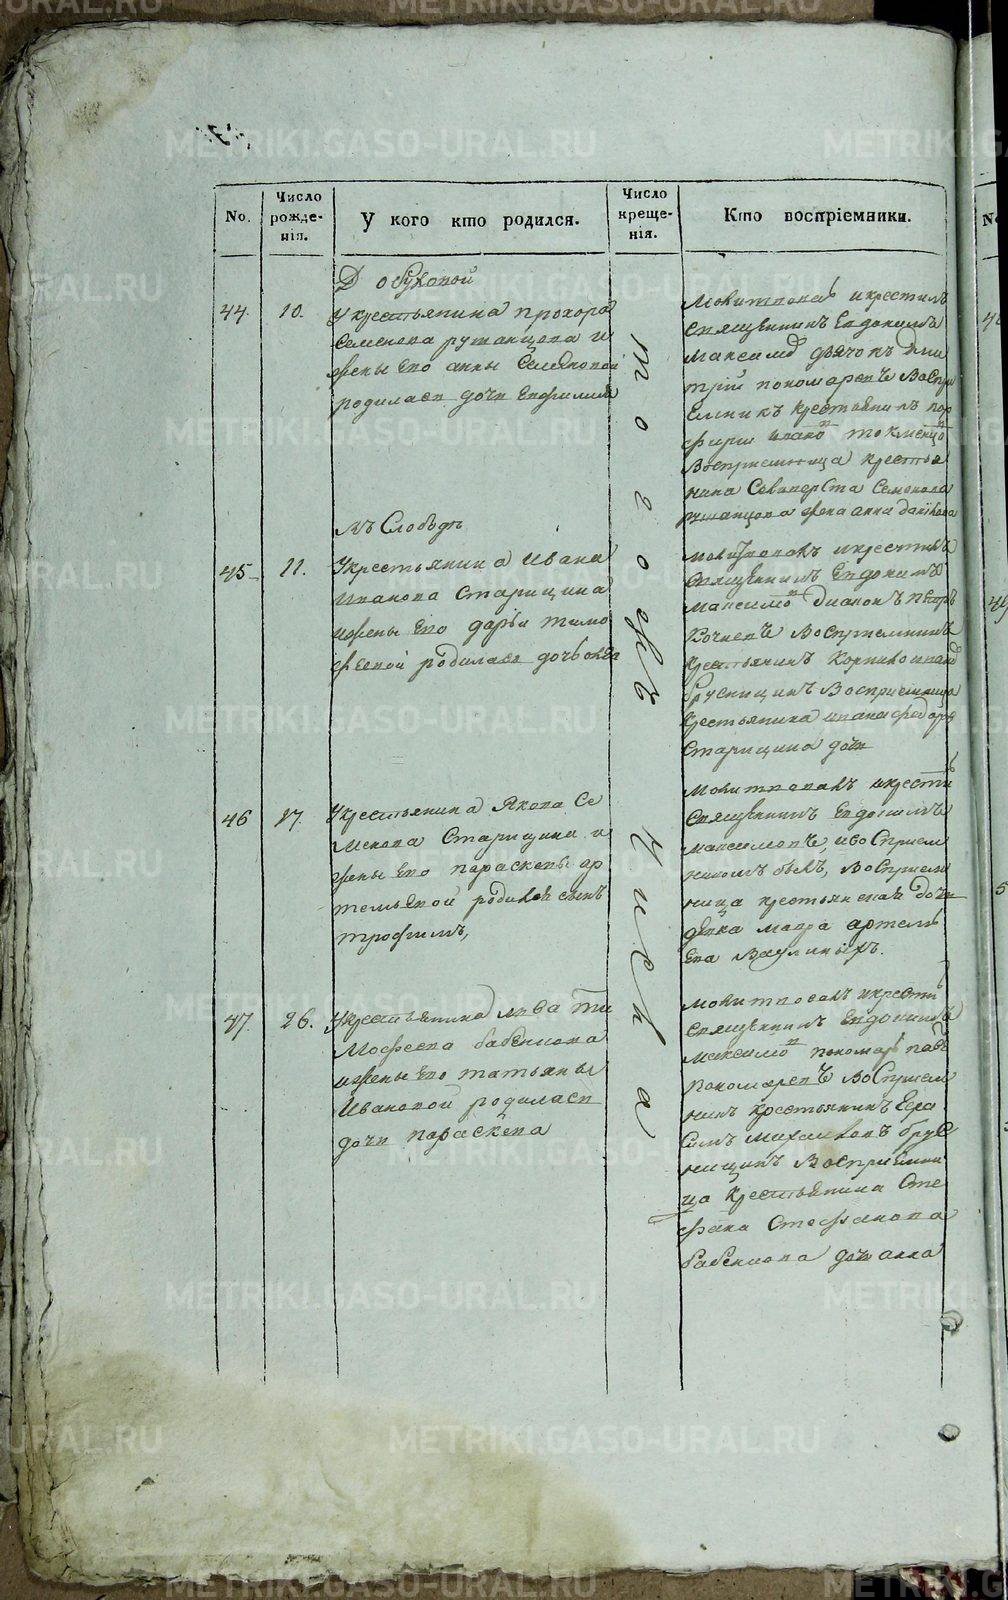 No.
Число рожде-нія.
У кого кто родился.
Число креще-нія.
Кто воспріемники.
Д обуховой
44.
10.
Укрестьянина прохора
Семенова
жены Его анны Семеновой
родилась дочь Евфимия
Молитвовалъ икрестилъ
Священникъ Евдокимъ
Максимов дьячокъ Дми
трий пономаревъ Воспри
Емникъ крестьянинъ пор
фирий
Восприемница крестья
нина Селиверста Семенова
жена анна
въ Слободѣ
45
11.
Укрестьянина Ивана
Иванова Старицина
ижены Его дарьи тимо
фѣевой родилась дочь
Молитвовалъ икрестилъ
Священникъ Евдокимъ
Максимов Диаконъ
Кочневъ Восприемникъ
крестьянинъ
брусницинъ Восприемница
крестьянина ивана федора
Старицина дочь
46
17.
Укрестьянина Якова Се
менова Старицина и
жены Его параскевы ар
темьевой родился сынъ
трофимъ,
Молитвовалъ икрести
Священникъ Евдокимъ
максимовъ, ивосприем
никомъ былъ, Восприем
ница крестьянская дочь
дѣвка мавра артемь
Ева Ваулиныхъ.
47.
26.
Укрестьянина льва ти
Мофеева бабенкова
ижены Его татьяны
Ивановой родилась
дочь параскева
Молитвовалъ икрести
Священникъ Евдокимъ
Максимов пономарь
пономаревъ Восприем
никъ крестьянинъ Гера
Симъ Михайловъ брус
ницинъ Восприемни
ца крестьянина Сте
фана Стефанова
бабенкова дочь анна
тогожъ
Числа
METRIKI.GASO-URAL.RU